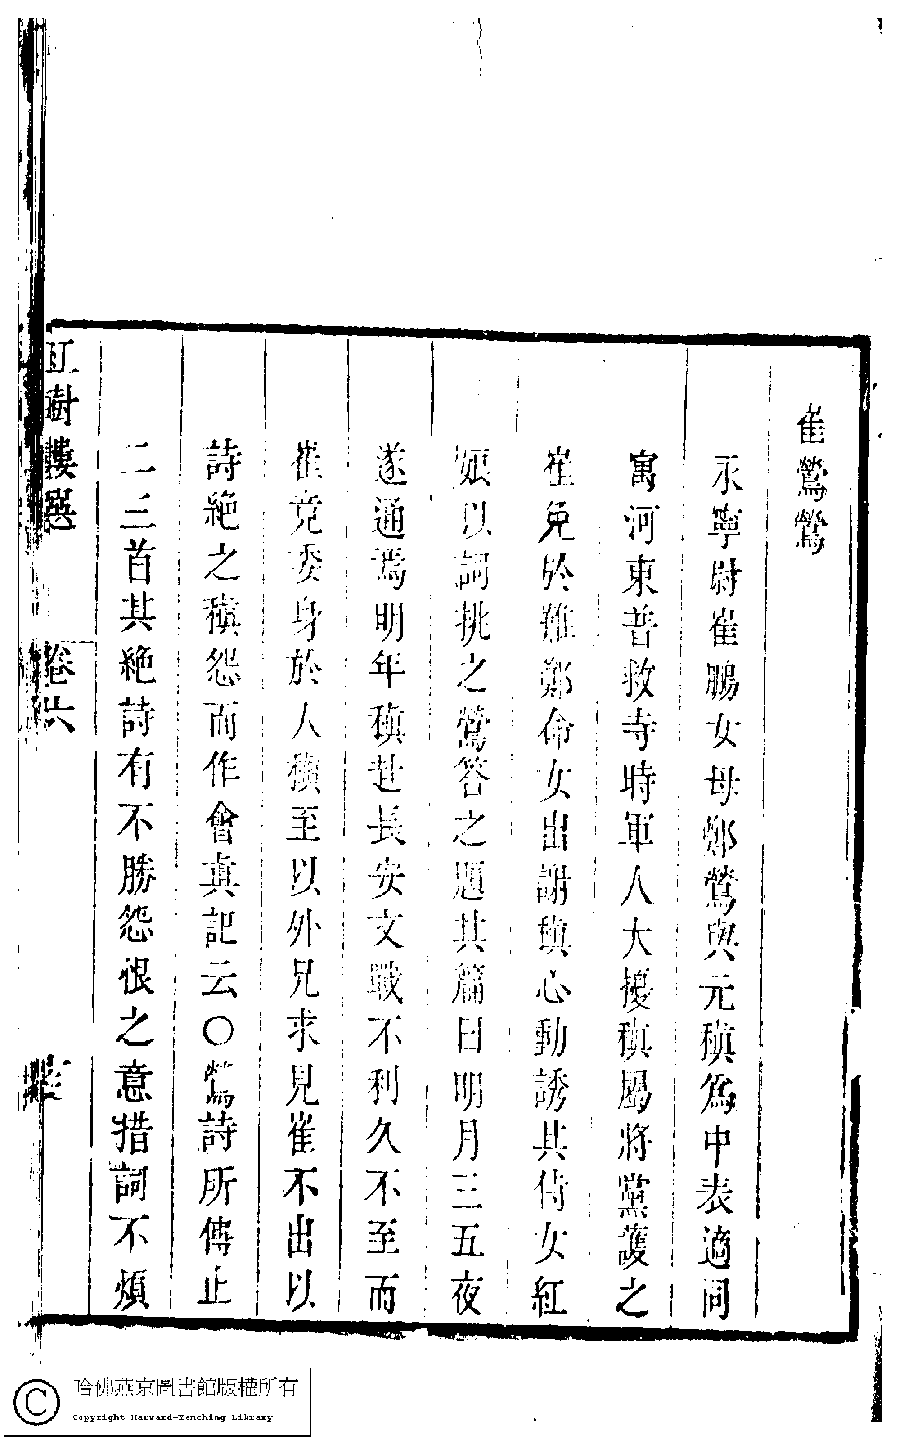 崔鶯鶯
永寧尉崔鵬女母鄭鶯與元稹為中表適同
寓河東普救寺時軍人大擾稹屬將黨護之
崔免於難鄭命女出謝稹心動誘其侍女紅
娘以詞挑之鶯答之題其篇曰明月三五夜
遂通焉明年稹赴長安文戰不利久不至而
崔竟委身於人稹至以外兄求見崔不出以
詩絶之稹怨而作會真記云○鶯詩所傳止
二三首其絶詩有不勝怨恨之意措詞不煩
紅樹樓選 卷六
哈佛燕京圖書館版權所有
Copyright Harvard-Yenching Library